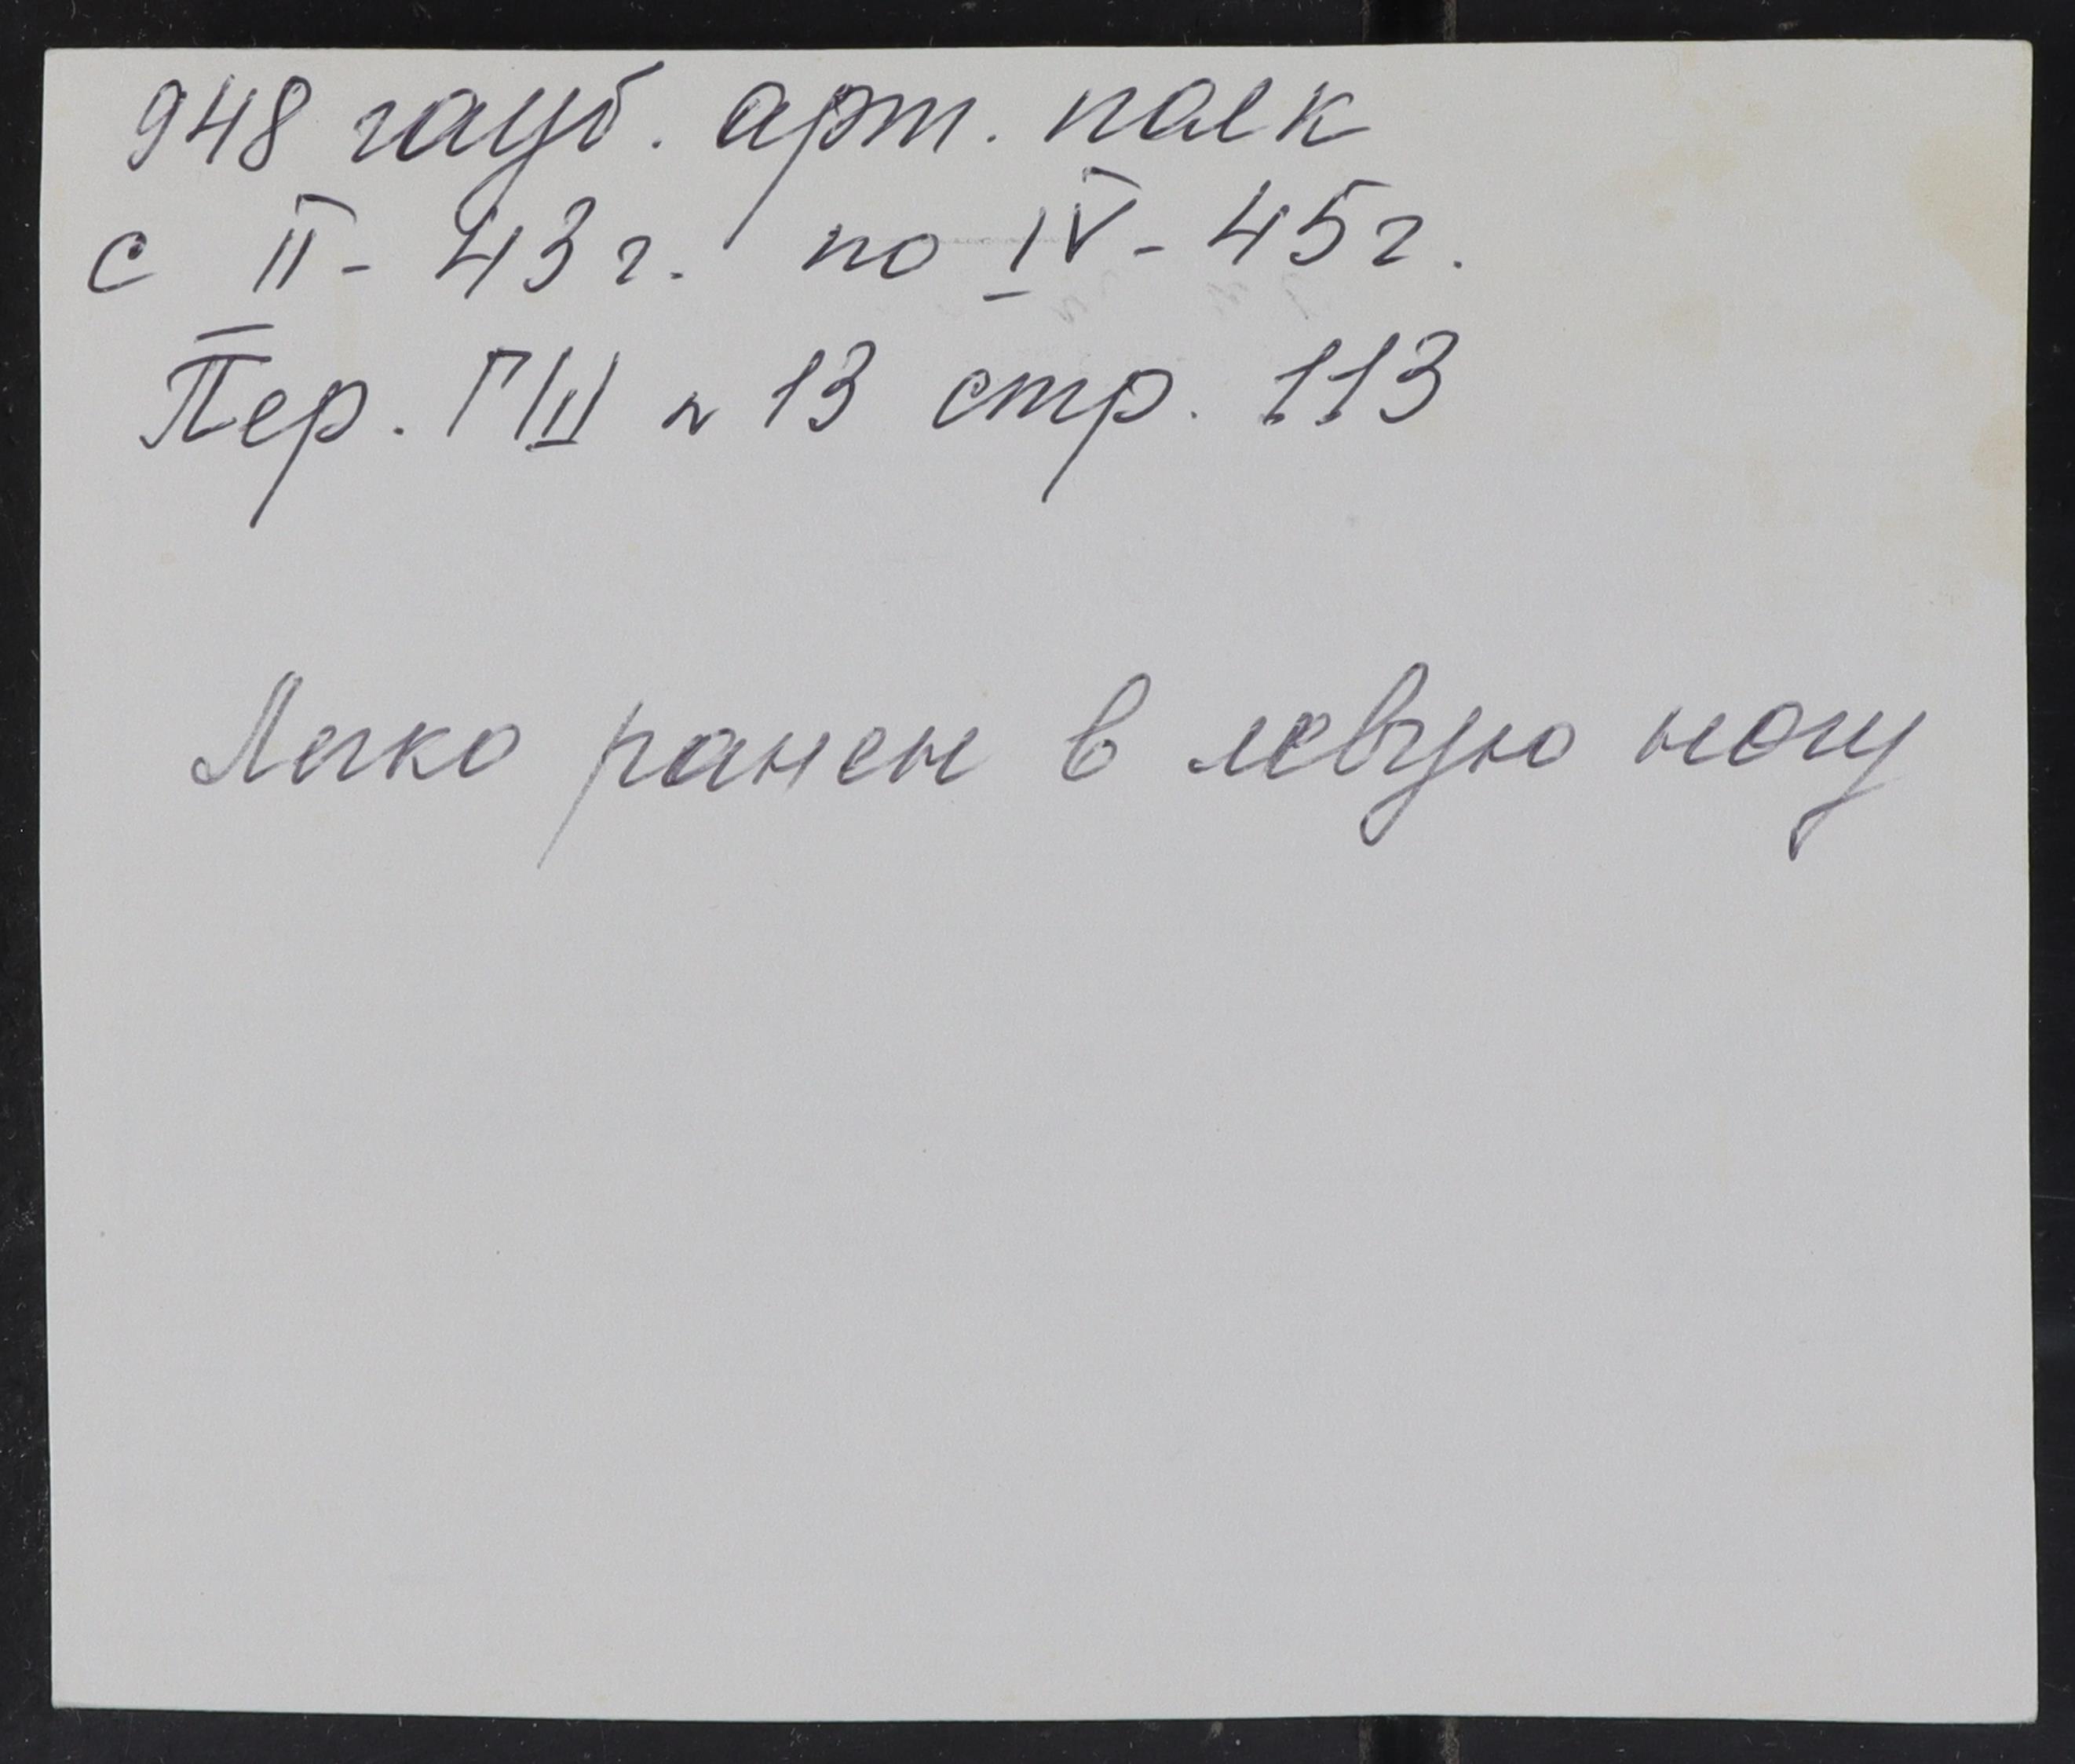 948 гауб. арт. полк
с II - 43 г. по IV - 45 г.
Пер. ГШ № 13 стр. 113
Легко ранен в левую ногу